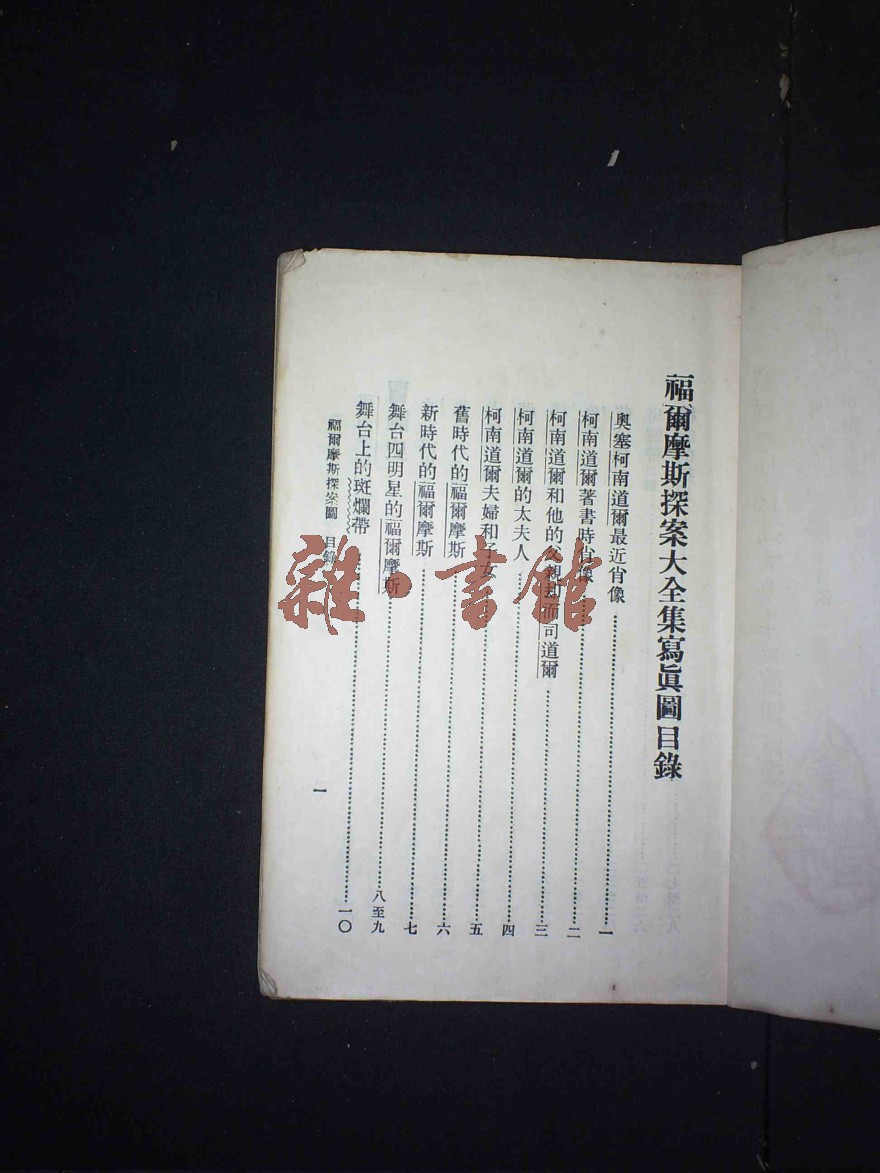 福爾摩斯探案大全集寫眞圖目錄
奧塞柯南道爾最近肖像……一
柯南道爾著書時肖像……二
柯南道爾和他的父親却而司道爾……三
柯南道爾的太夫人……四
柯南道爾夫婦和子女……五
舊時代的福爾摩斯……六
新時代的福爾摩斯……七
舞台四明星的福爾摩斯……八至九
舞台上的斑爛帶……一〇
福爾摩斯探案圖 目錄
一
雜·書館